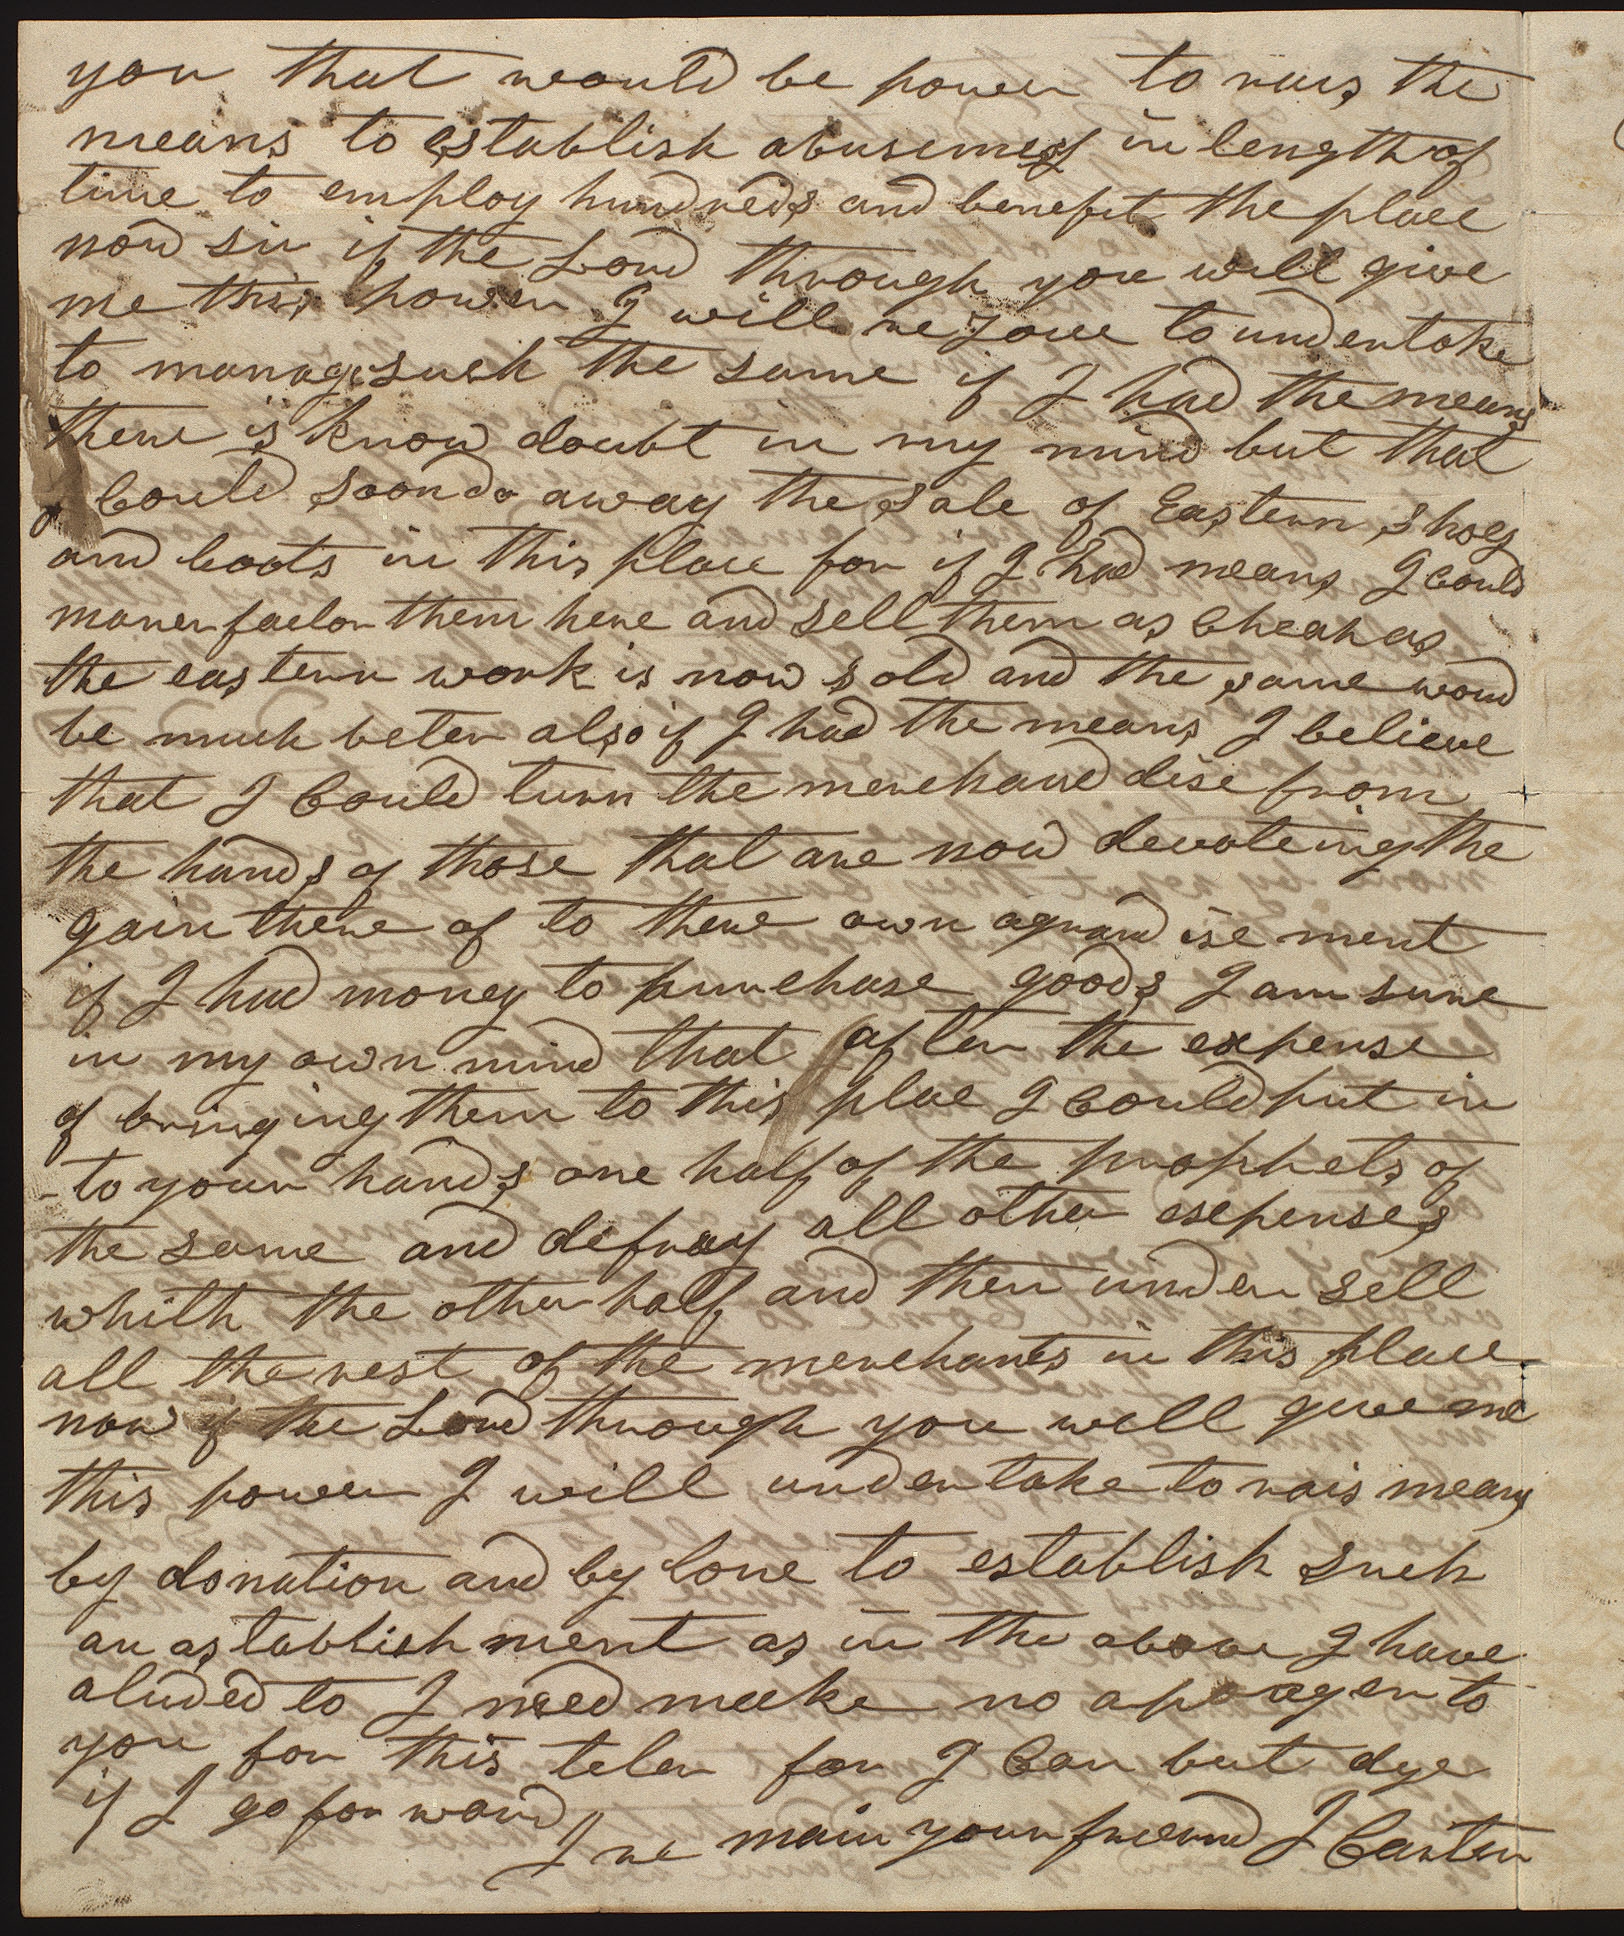 you that would be power to rais the
means to establish abusiness in length of
time to employ hundreds and benefit the place
now sir if the Lord through you will give
me this power I will rejoice to undertake
to manage such the same if I had the means
there is know doubt in my mind but that
I Could soon do away the sale of Eastern shoes
and boots in this place for if I had means I Could
manerfactor them here and sell them as Cheap as
the eastern work is now sold and the same woud
be much beter also if I had the means I believe
that I Could turn the merchand dise from
the hands of those that are now devoteing the
gain there of to there own agrand ise ment
if I had money to purchase goods I am sure
in my own mind that after the expense
of bringing them to this place I Could put in
-to your hands one half of the prophets of
the same and defray all other expenses
whith the other half and then under sell
all the rest of the merchants in this place
now if the Lord through you will give me
this power I will undertake to rais means
by donation and by lone to establish such
an astablish ment as in the above I have
aluded to I need make no to
you for this leter for I Can but dye
if I go forward
I re main your friend J Carter